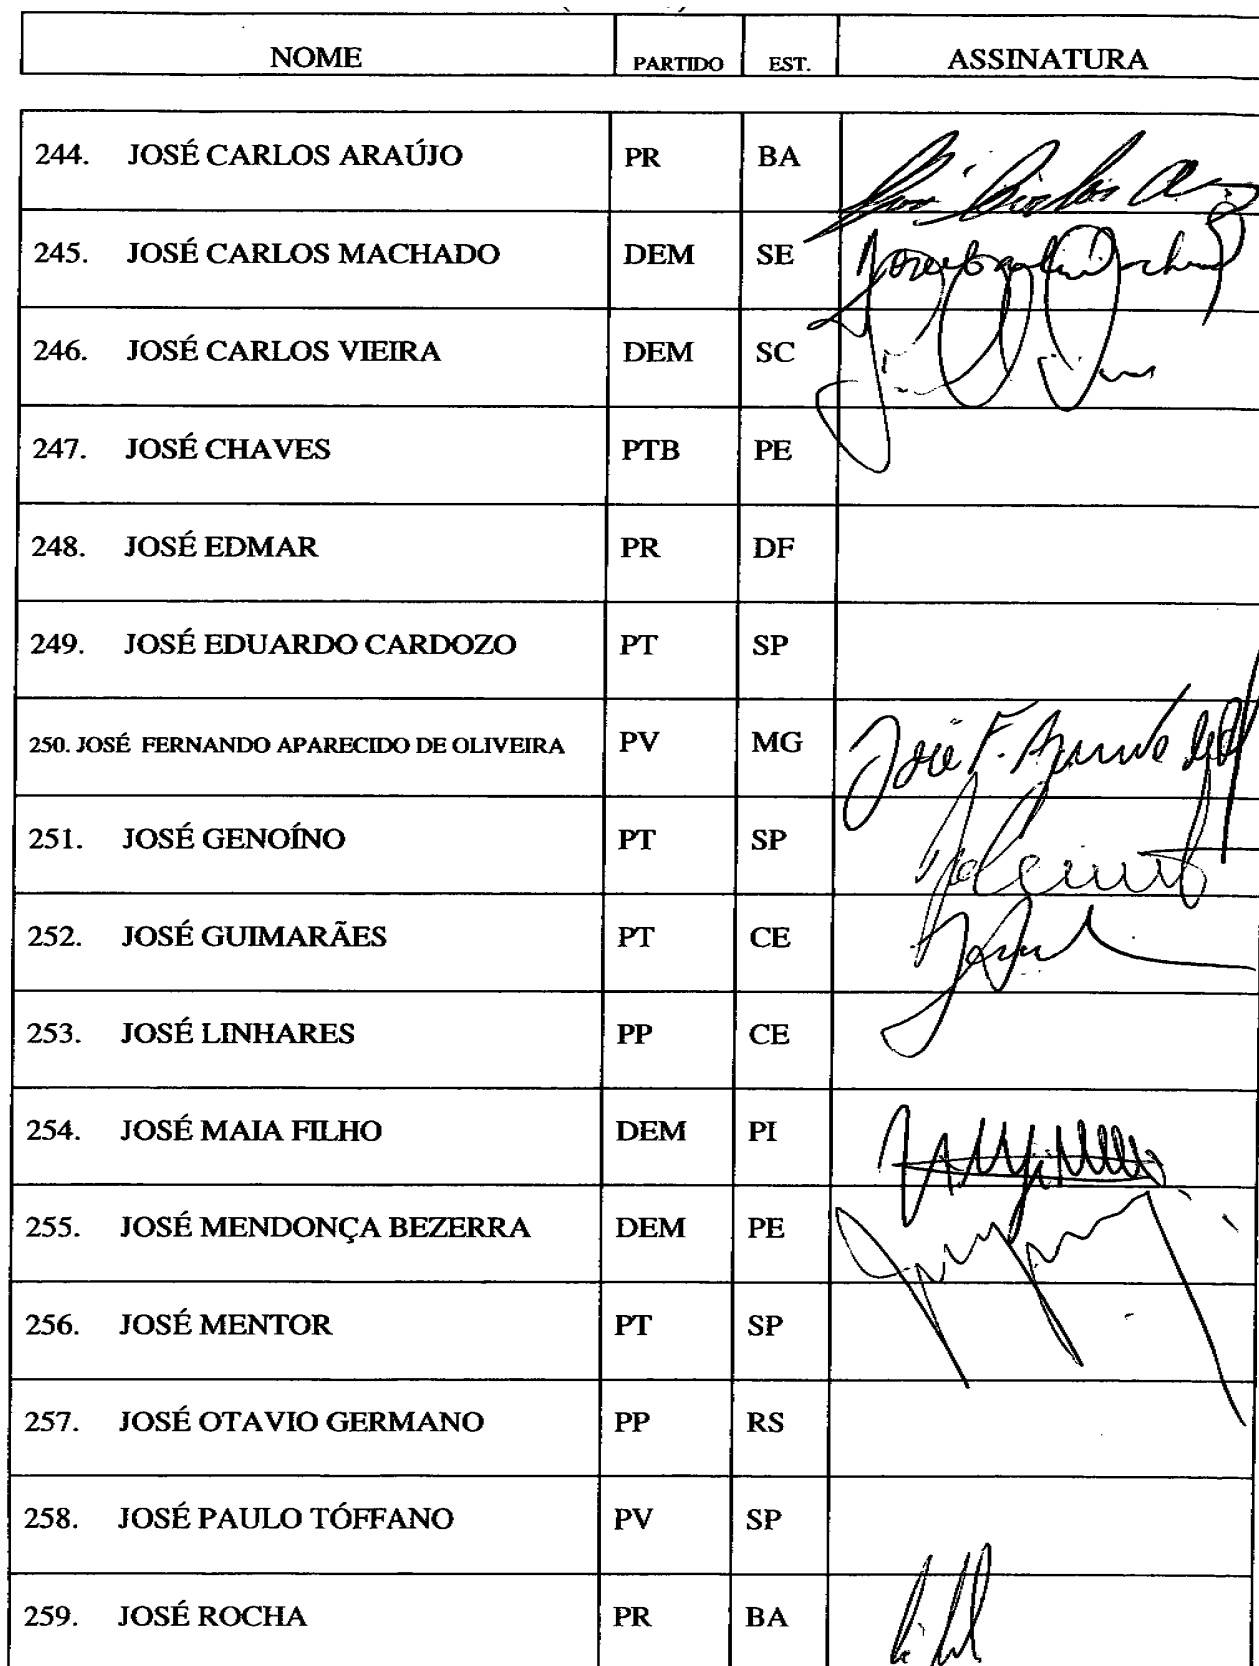 NOME PARTIDO EST. ASSINATURA
244. JOSÉ CARLOS ARAÚJO PR BA
245. JOSÉ CARLOS MACHADO DEM SE
246. JOSÉ CARLOS VIEIRA DEM SC
247. JOSÉ CHAVES PTB PE
248. JOSÉ EDMAR PR DF
249. JOSÉ EDUARDO CARDOZO PT SP
250. JOSÉ FERNANDO APARECIDO DE OLIVEIRA PV MG José F.
251. JOSÉ GENOÍNO PT SP
252. JOSÉ GUIMARÃES PT CE
253. JOSÉ LINHARES PP CE
254. JOSÉ MAIA FILHO DEM PI
255. JOSÉ MENDONÇA BEZERRA DEM PE
256. JOSÉ MENTOR PT SP
257. JOSÉ OTAVIO GERMANO PP RS
258. JOSÉ PAULO TÓFFANO PV SP
259. JOSÉ ROCHA PR BA